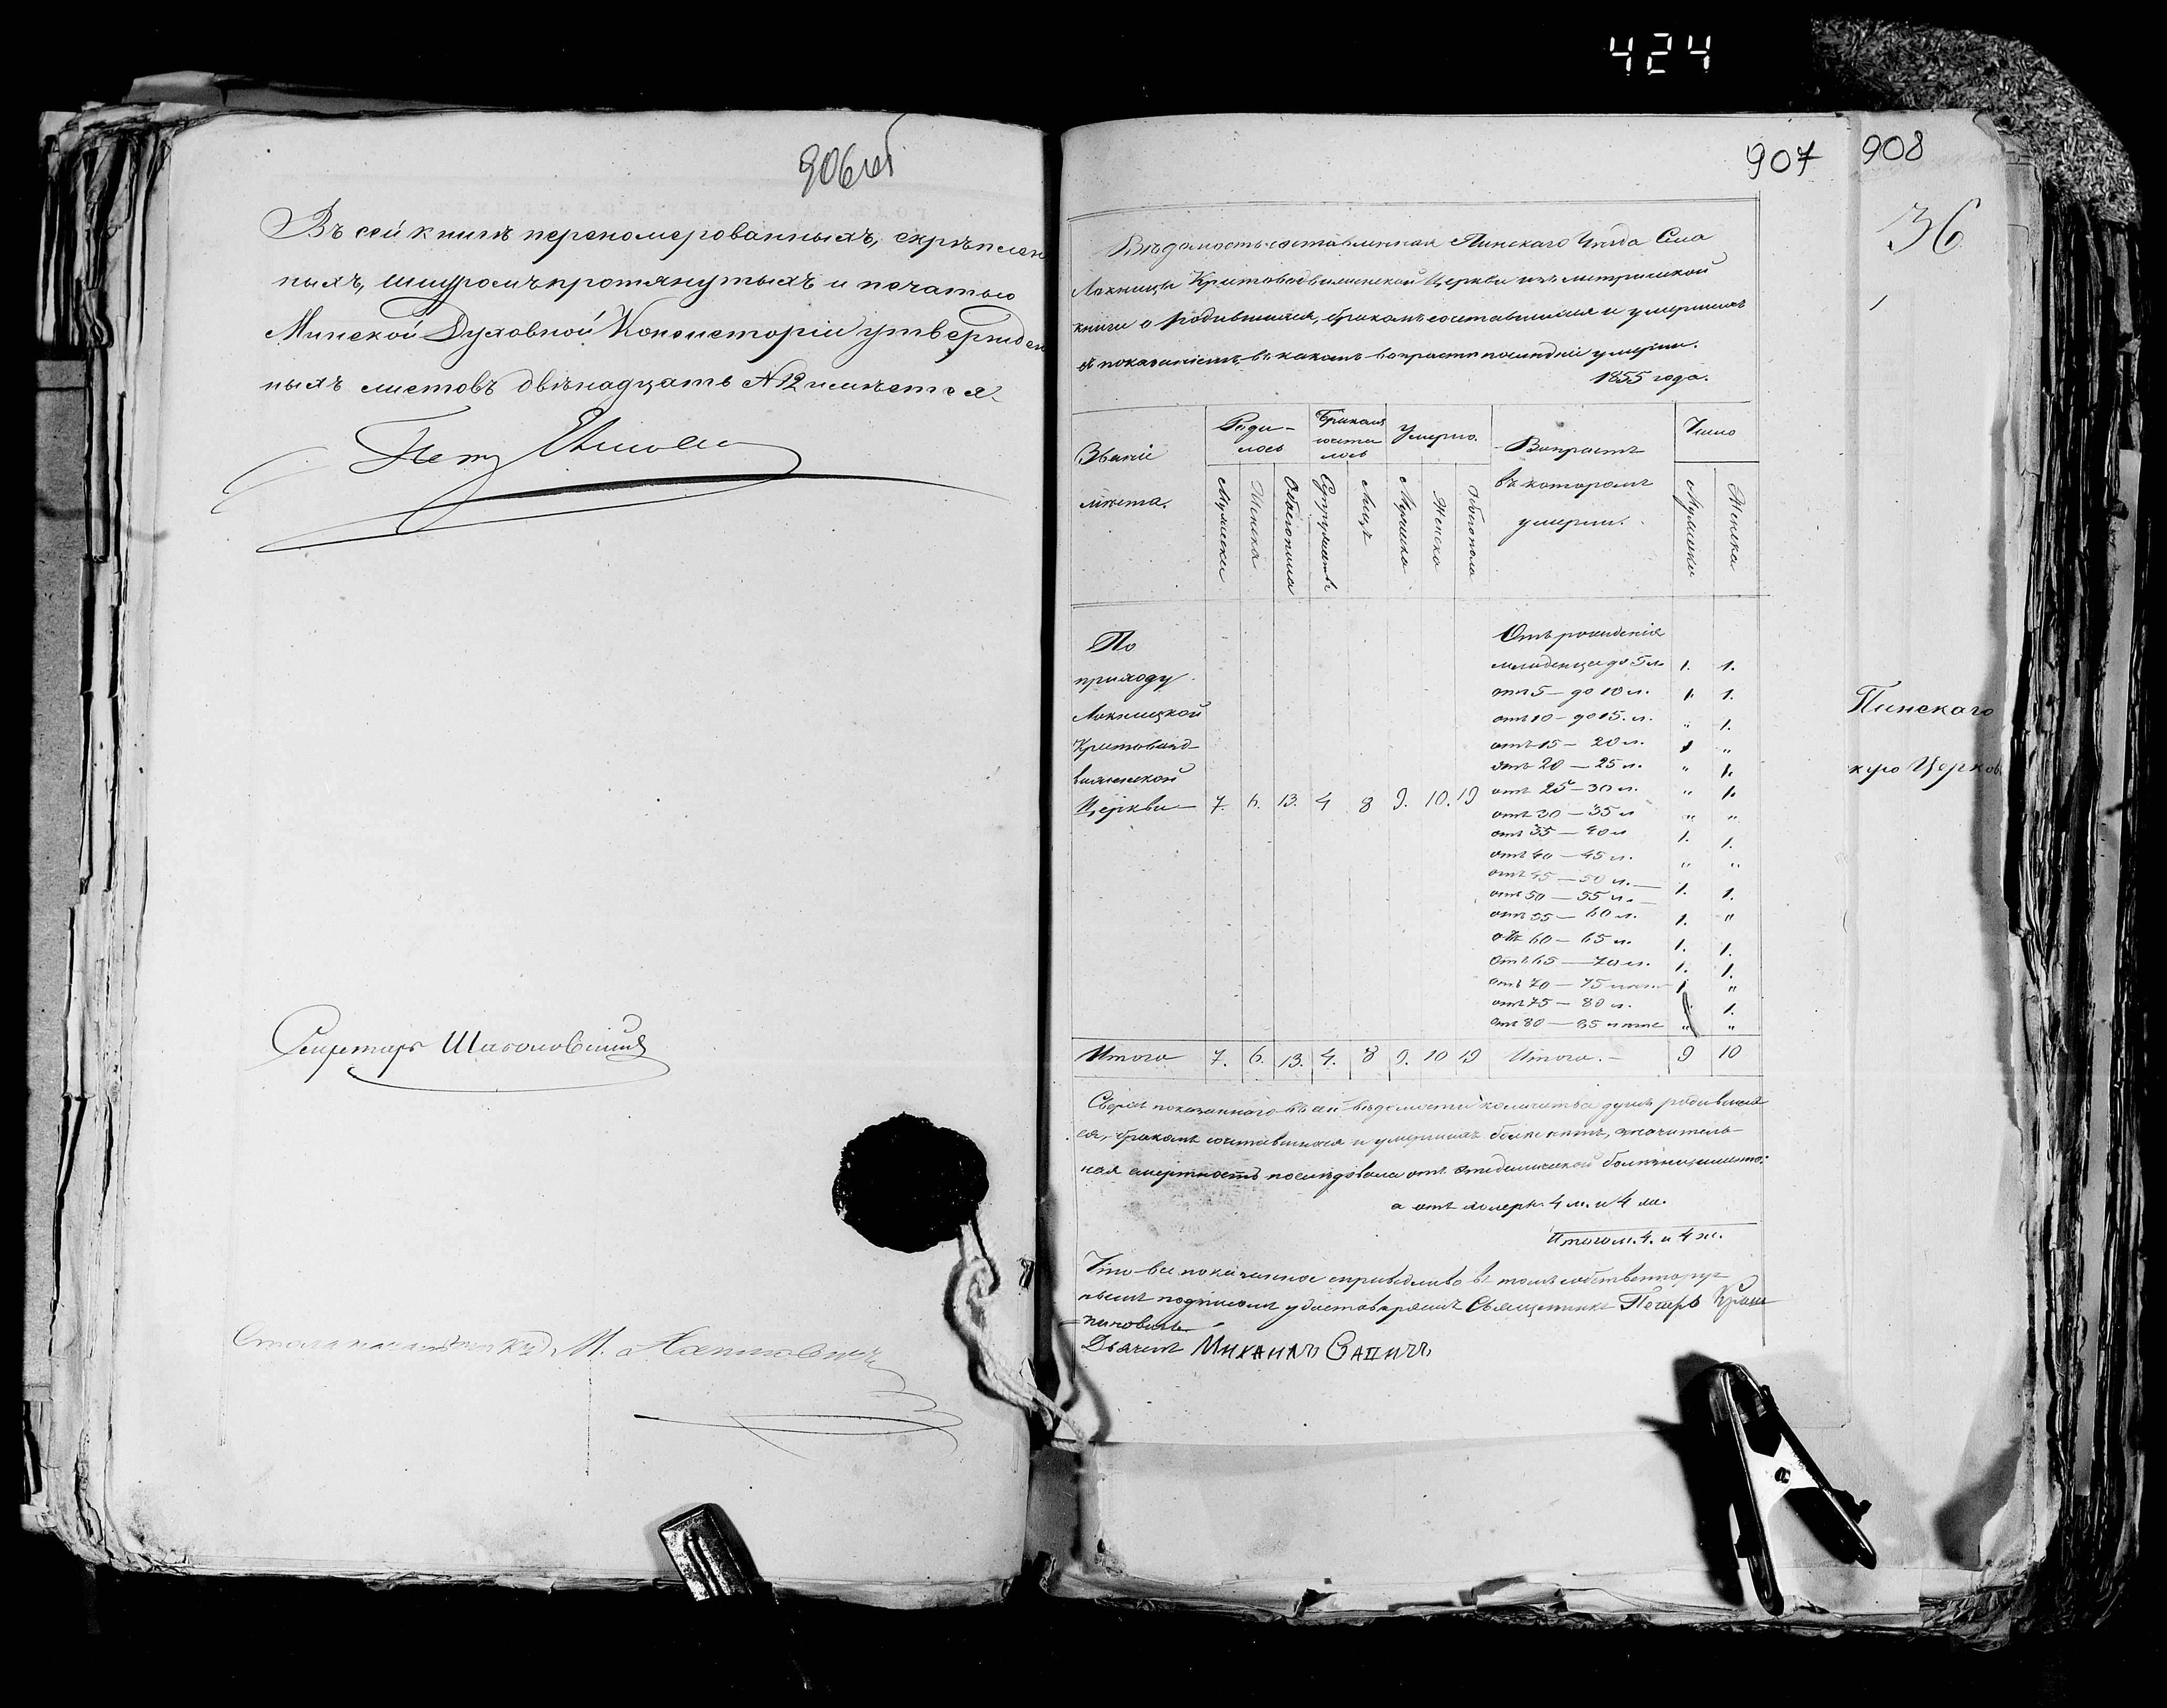 424
906 об
Въ сей книгѣ переномерованныхъ, скрѣплен
ныхъ, шнуромъ протянутыхъ и печатью
Минской Духовной Консисторіи утвержден
ныхъ листовъ двѣнадцать №12 имѣется.
Петр
Секретарь
М.
907
Вѣдомость составленная Пинскаго Уѣзда Села
Крестовоздвиженской Церкви изъ метрической
книги о родившихся, бракомъ сочетавшихся и умершихъ
съ показаніемъ, въ какомъ возрастѣ послѣдніе умерли.
1855 года.
Званіе мѣста.
Роди-лось
Бракомъ сочета лось
Умерло.
Возрастъ въ которомъ умерли.
Число
Мужеска Женска Обоегопола Супружествъ Лицъ Мужеска Женска Обоегопола Мужеска Женска
По
приходу
Крестовозд-
виженской
Церкви 7. 6. 13. 4 8 9. 10. 19
Отъ рожденія
младенца до 5 л. 1. 1.
отъ 5 — до 10 л. 1. 1.
отъ 10 — до 15. л. „ 1.
отъ 15 — 20 л. 1 „
отъ 20 — 25 л. „ 1.
отъ 25 — 30 л. „ 1.
отъ 30 — 35 л „ „
отъ 35 — 40 л 1. 1.
отъ 40 — 45 л. „ „
отъ 45 — 50 л. — 1. 1.
отъ 50 — 55 л. —
отъ 55 — 60 л. 1. „
отъ 60 — 65 л. 1. 1.
отъ 65 — 70 л. 1. 1.
отъ 70 — 75 1 „
отъ 75 — 80 л. 1.
отъ 80 — 85 „ „
Итого 7. 6. 13. 4. 8 9. 10 19 Итого. — 9 10
Сверхъ показаннаго въ сей вѣдомости количества душъ родивших
ся, бракомъ сочетавшихся и умершихъ болѣе нѣтъ, значитель-
ная смертность послѣдовала отъ эпидемической болѣзни, именно:
а отъ холеры 4 м. и 4 ж.
Итого м. 4. и 4 ж.
Что все показанное справедливо въ томъ собственноруч
нымъ подписомъ удостовѣряемъ Священникъ Петръ
Дьячекъ Михаилъ
908
36
1
Пинскаго
Церков